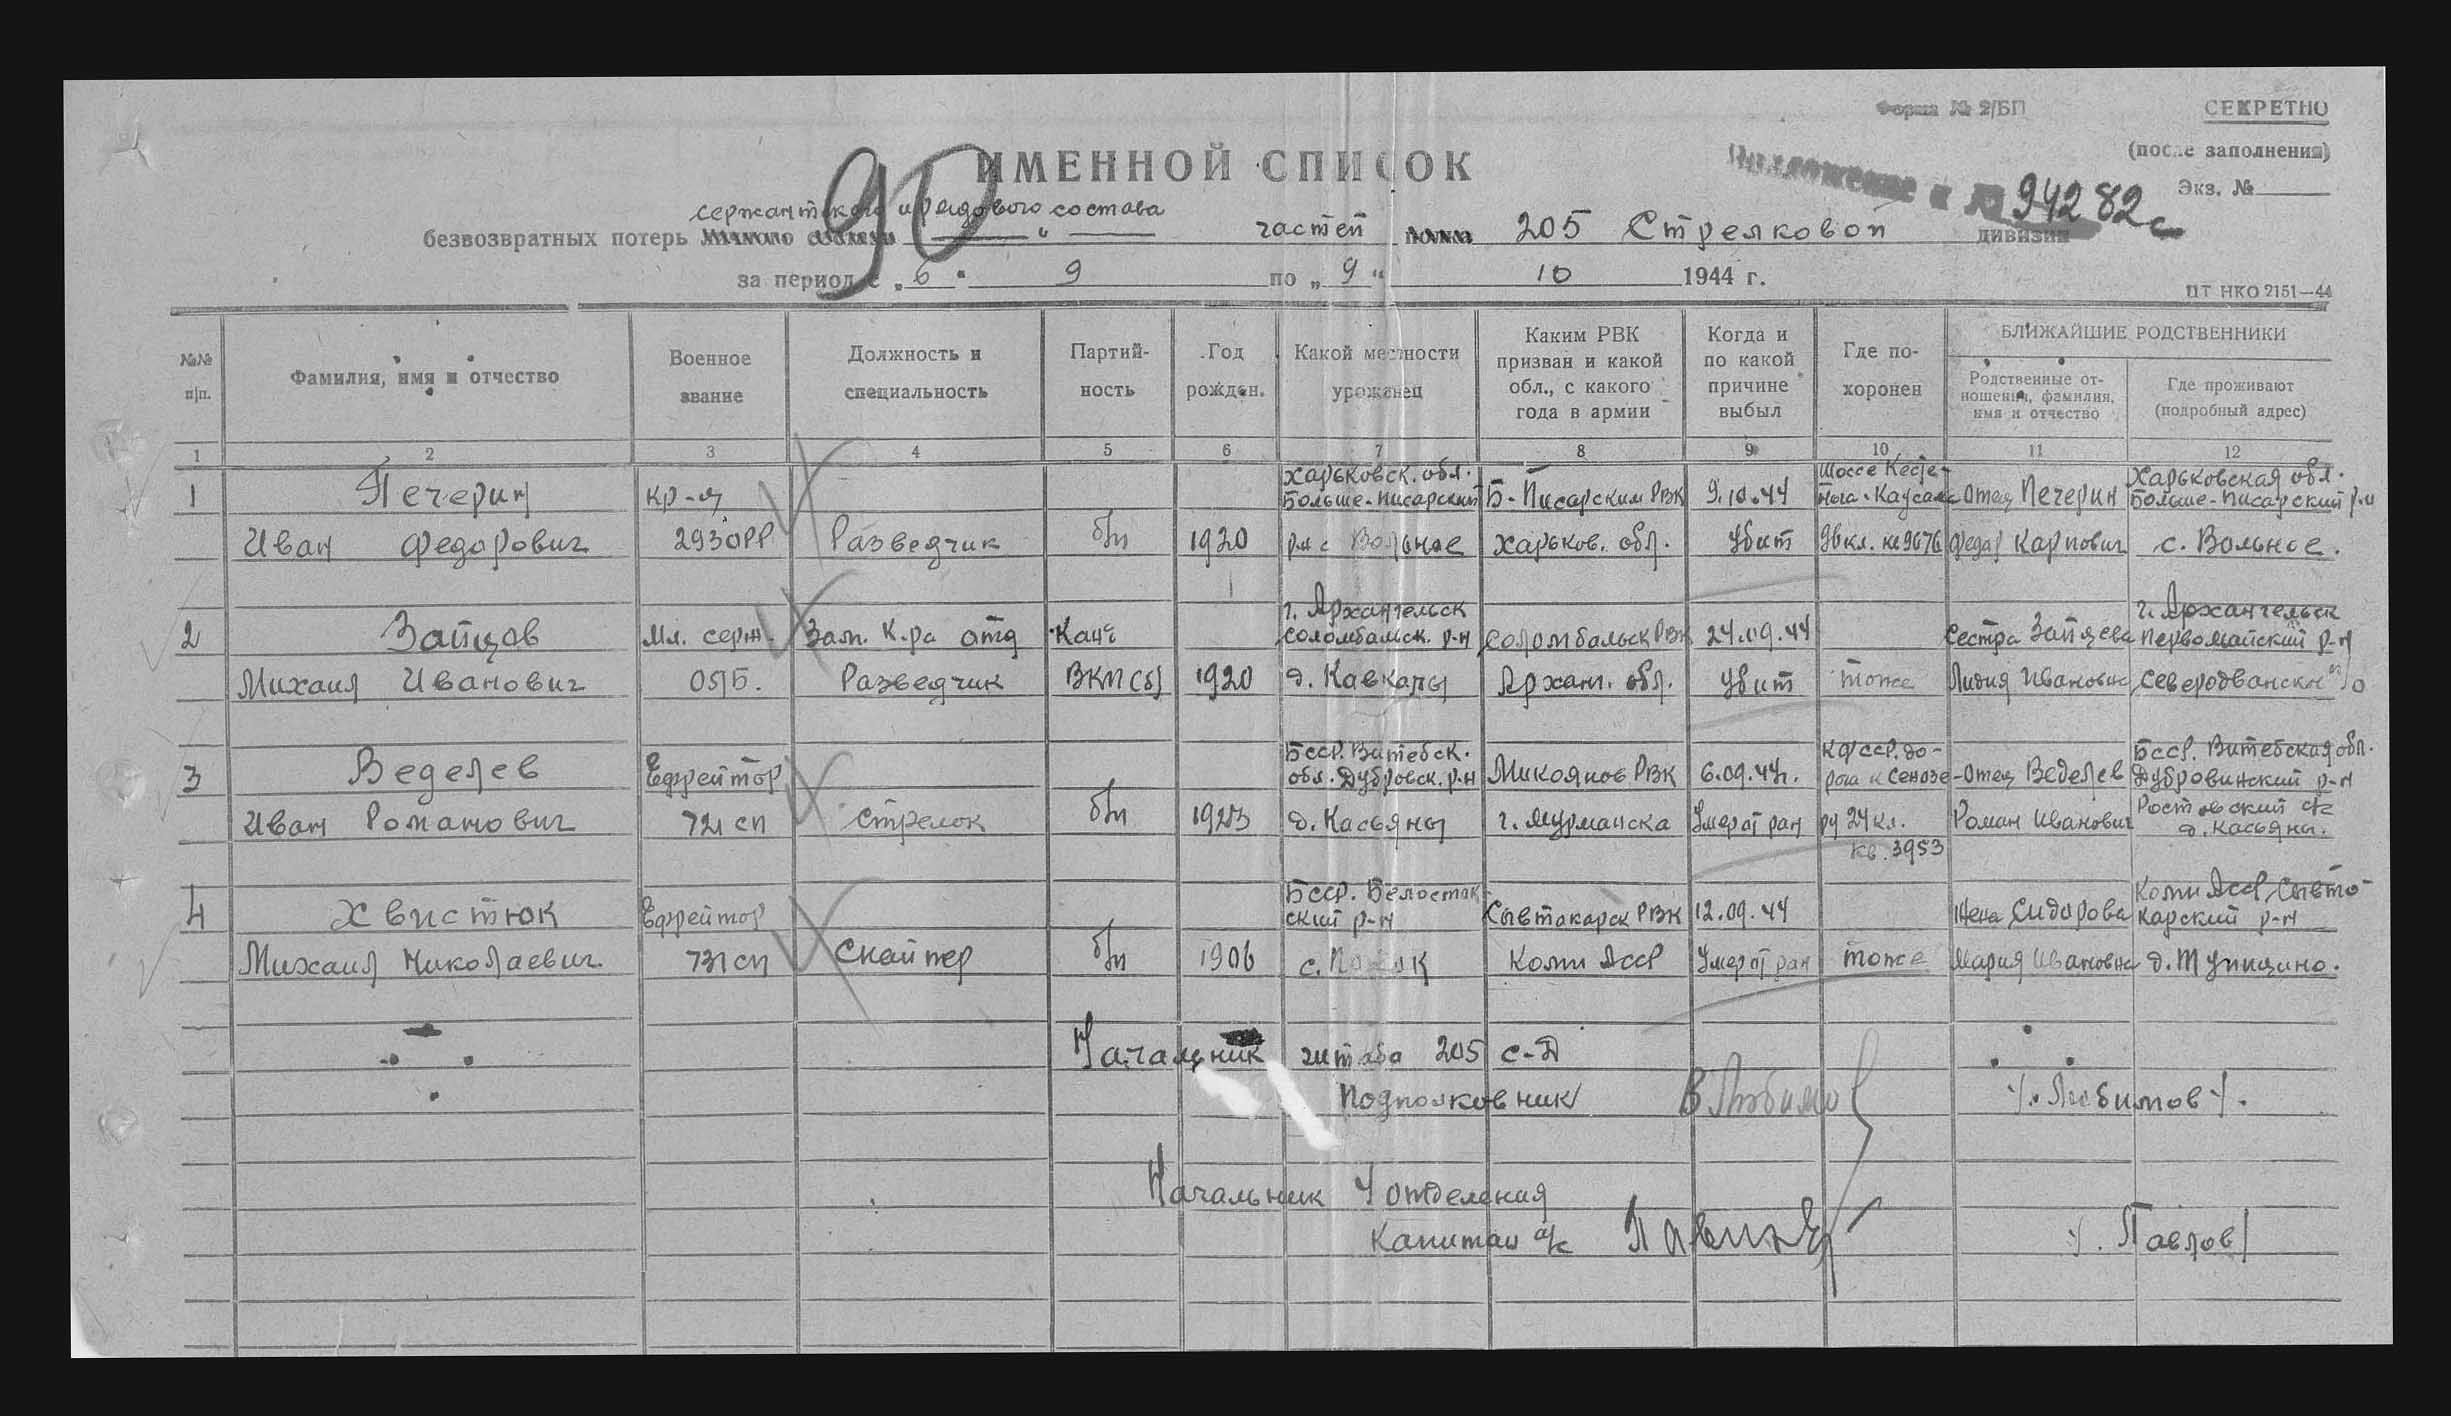 Форма № 2/БП
СЕКРЕТНО
(после заполнения)
Экз. №
ИМЕННОЙ СПИСОК
90
к № 94282с
сержантского и рядового состава
безвозвратных потерь частей 205 Стрелковой дивизии
за период с „6“ 9 по „9“ 10 1944 г.
ЦТ НКО 2151—44
№№ п/п.
Фамилия, имя и отчество
Военное звание
Должность и специальность
Партий-ность
Год рожден.
Какой местности уроженец
Каким РВК призван и какой обл., с какого года в армии
Когда и по какой причине выбыл
Где по-хоронен
БЛИЖАЙШИЕ РОДСТВЕННИКИ
Родственные от-ношения, фамилия, имя и отчество
Где проживают (подробный адрес)
1 2 3 4 5 6 7 8 9 10 11 12
Харьковск. обл. шоссе Кесте- Харьковская обл.
1 Печерин кр-ц Больше-Писарский Б-Писарским РВК 9.10.44 отец Печерин Больше-Писарский р-н
Иван Федорович 293 ОРР Разведчик б/п 1920 р-н с Вольное Харьков. обл. убит Федор Карпович с. Вольное.
г. Архангельск г. Архангельск
2 Зайцов Мл. серж. Зам. К-ра отд Канд Соломбальск. р-н Соломбальск РВК 24.09.44 Сестра Зайцева Первомайский р-н
Михаил Иванович ОЛБ. Разведчик ВКП(б) 1920 Архан. обл. убит тоже Лидия Ивановна
БССР. Витебск. КФССР. до- БССР. Витебская обл.
3 Веделев Ефрейтор обл. Дубровск. р-н Микоянов РВК 6.09.44г. отец Веделев Дубровинский р-н
Иван Романович 721 сп Стрелок б/п 1923 д. Касьяны г. Мурманска Умер от ран Роман Иванович Ростовский с/с
д. Касьяны.
кв. 3953
БССР. Белосток Коми АССР, Сывто-
4 Хвистюк Ефрейтор ский р-н Сывтакарск РВК 12.09.44 Жена Сидорова карский р-н
Михаил Николаевич 731 сп Снайпер б/п 1906 с. Коми АССР Умер от ран тоже Мария Ивановна
Начальник штаба 205 с-д
Подполковник В Любимов /. Любимов /.
Начальник 4 отделения
Капитан а/с /. Павлов /